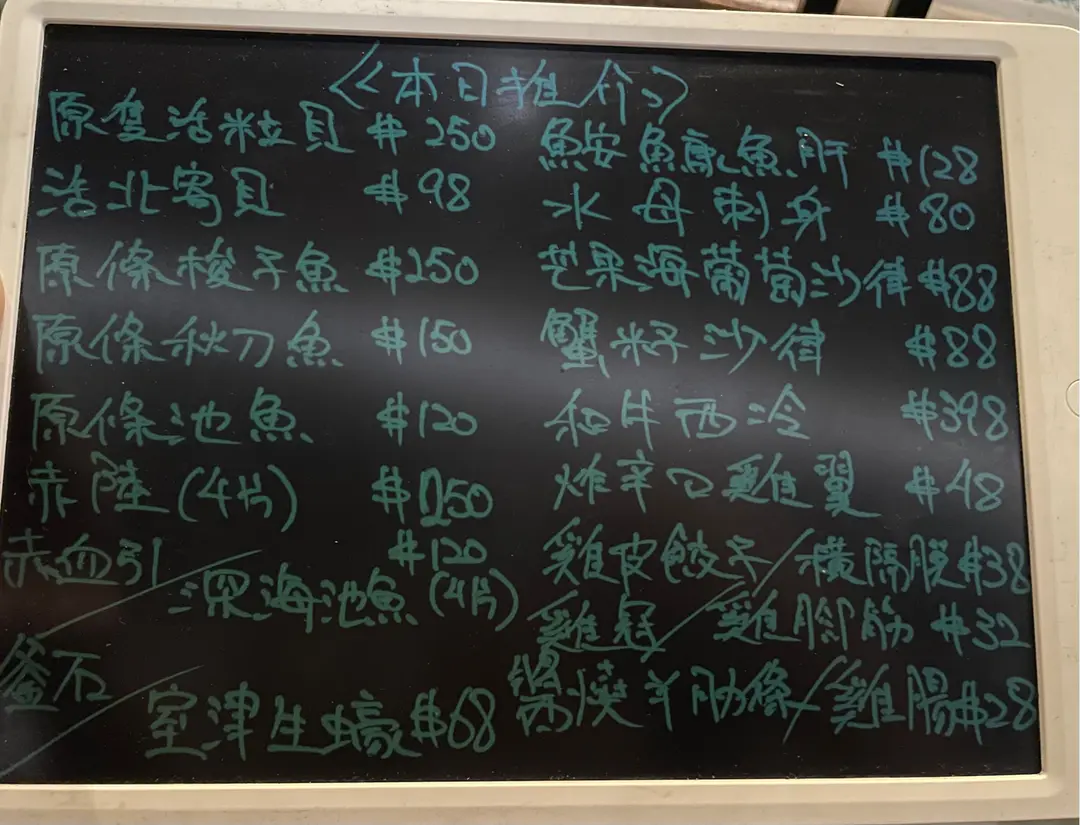 《本日推介》
原隻活粒貝 $250
活北寄貝 $98
原條梭子魚 $250
原條秋刀魚 $150
原條池魚 $120
赤陸(4片) $250
赤血引/深海池魚(4片) $120
釜石/室津生蠔 $68
鮟鱇魚肝 $128
水母刺身 $80
芒果海葡萄沙律 $88
蟹籽沙律 $88
和牛西冷 $398
炸辛口雞翼 $48
雞皮餃子/橫隔膜 $38
雞冠/雞腳筋 $32
燒羊肋條/雞腸 $28